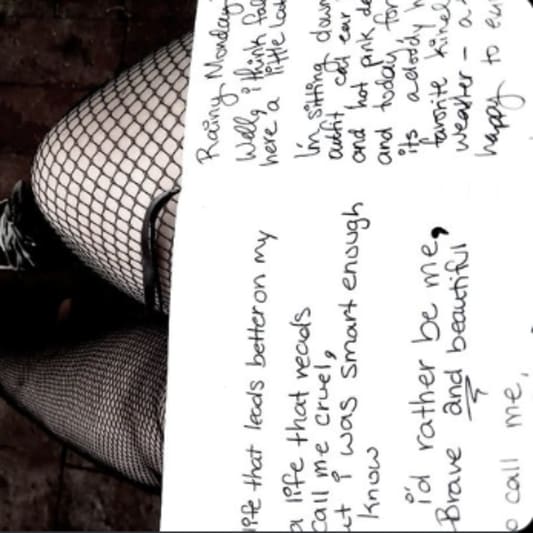 Rainy Monday
Well, i think fal
here a little lat
I'm sitting down
outfit cat ear
and hot pink de
and today for
its a daddy h
favorite kinel
weather - a
happy to eat
life that leads better on my
a life that reads
call me cruel,
t i was smart enough
know
i'd rather be me,
Brave and beautiful
o call me,